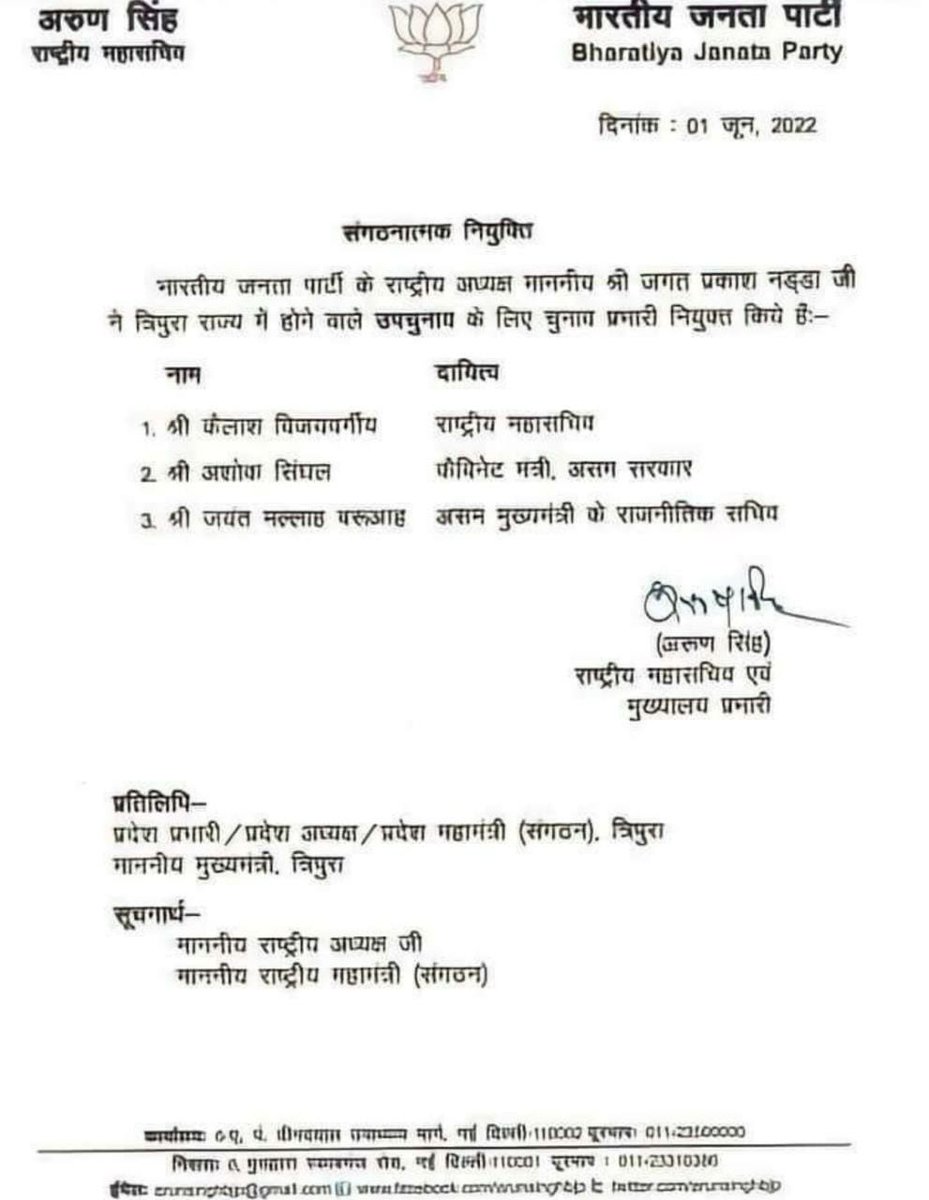 अरुण सिंह
राष्ट्रीय महासचिव
भारतीय जनता पार्टी
Bharatiya Janata Party
दिनांक : 01 जून, 2022
संगठनात्मक नियुक्ति
भारतीय जनता पार्टी के राष्ट्रीय अध्यक्ष माननीय श्री जगत प्रकाश नड्डा जी
ने त्रिपुरा राज्य में होने वाले उपचुनाव के लिए चुनाव प्रभारी नियुक्त किये हैः–
नाम दायित्व
1. श्री कैलाश विजयवर्गीय राष्ट्रीय महासचिव
2. श्री अशोक सिंघल कैबिनेट मंत्री, असम सरकार
3. श्री जयंत मल्लाह बरूआह असम मुख्यमंत्री के राजनीतिक सचिव
(अरूण सिंह)
राष्ट्रीय महासचिव एवं
मुख्यालय प्रभारी
प्रतिलिपि–
प्रदेश प्रभारी/प्रदेश अध्यक्ष/प्रदेश महामंत्री (संगठन), त्रिपुरा
माननीय मुख्यमंत्री, त्रिपुरा
सूचनार्थ–
माननीय राष्ट्रीय अध्यक्ष जी
माननीय राष्ट्रीय महामंत्री (संगठन)
मार्ग, नई दिल्ली-110002
नई दिल्ली-110001